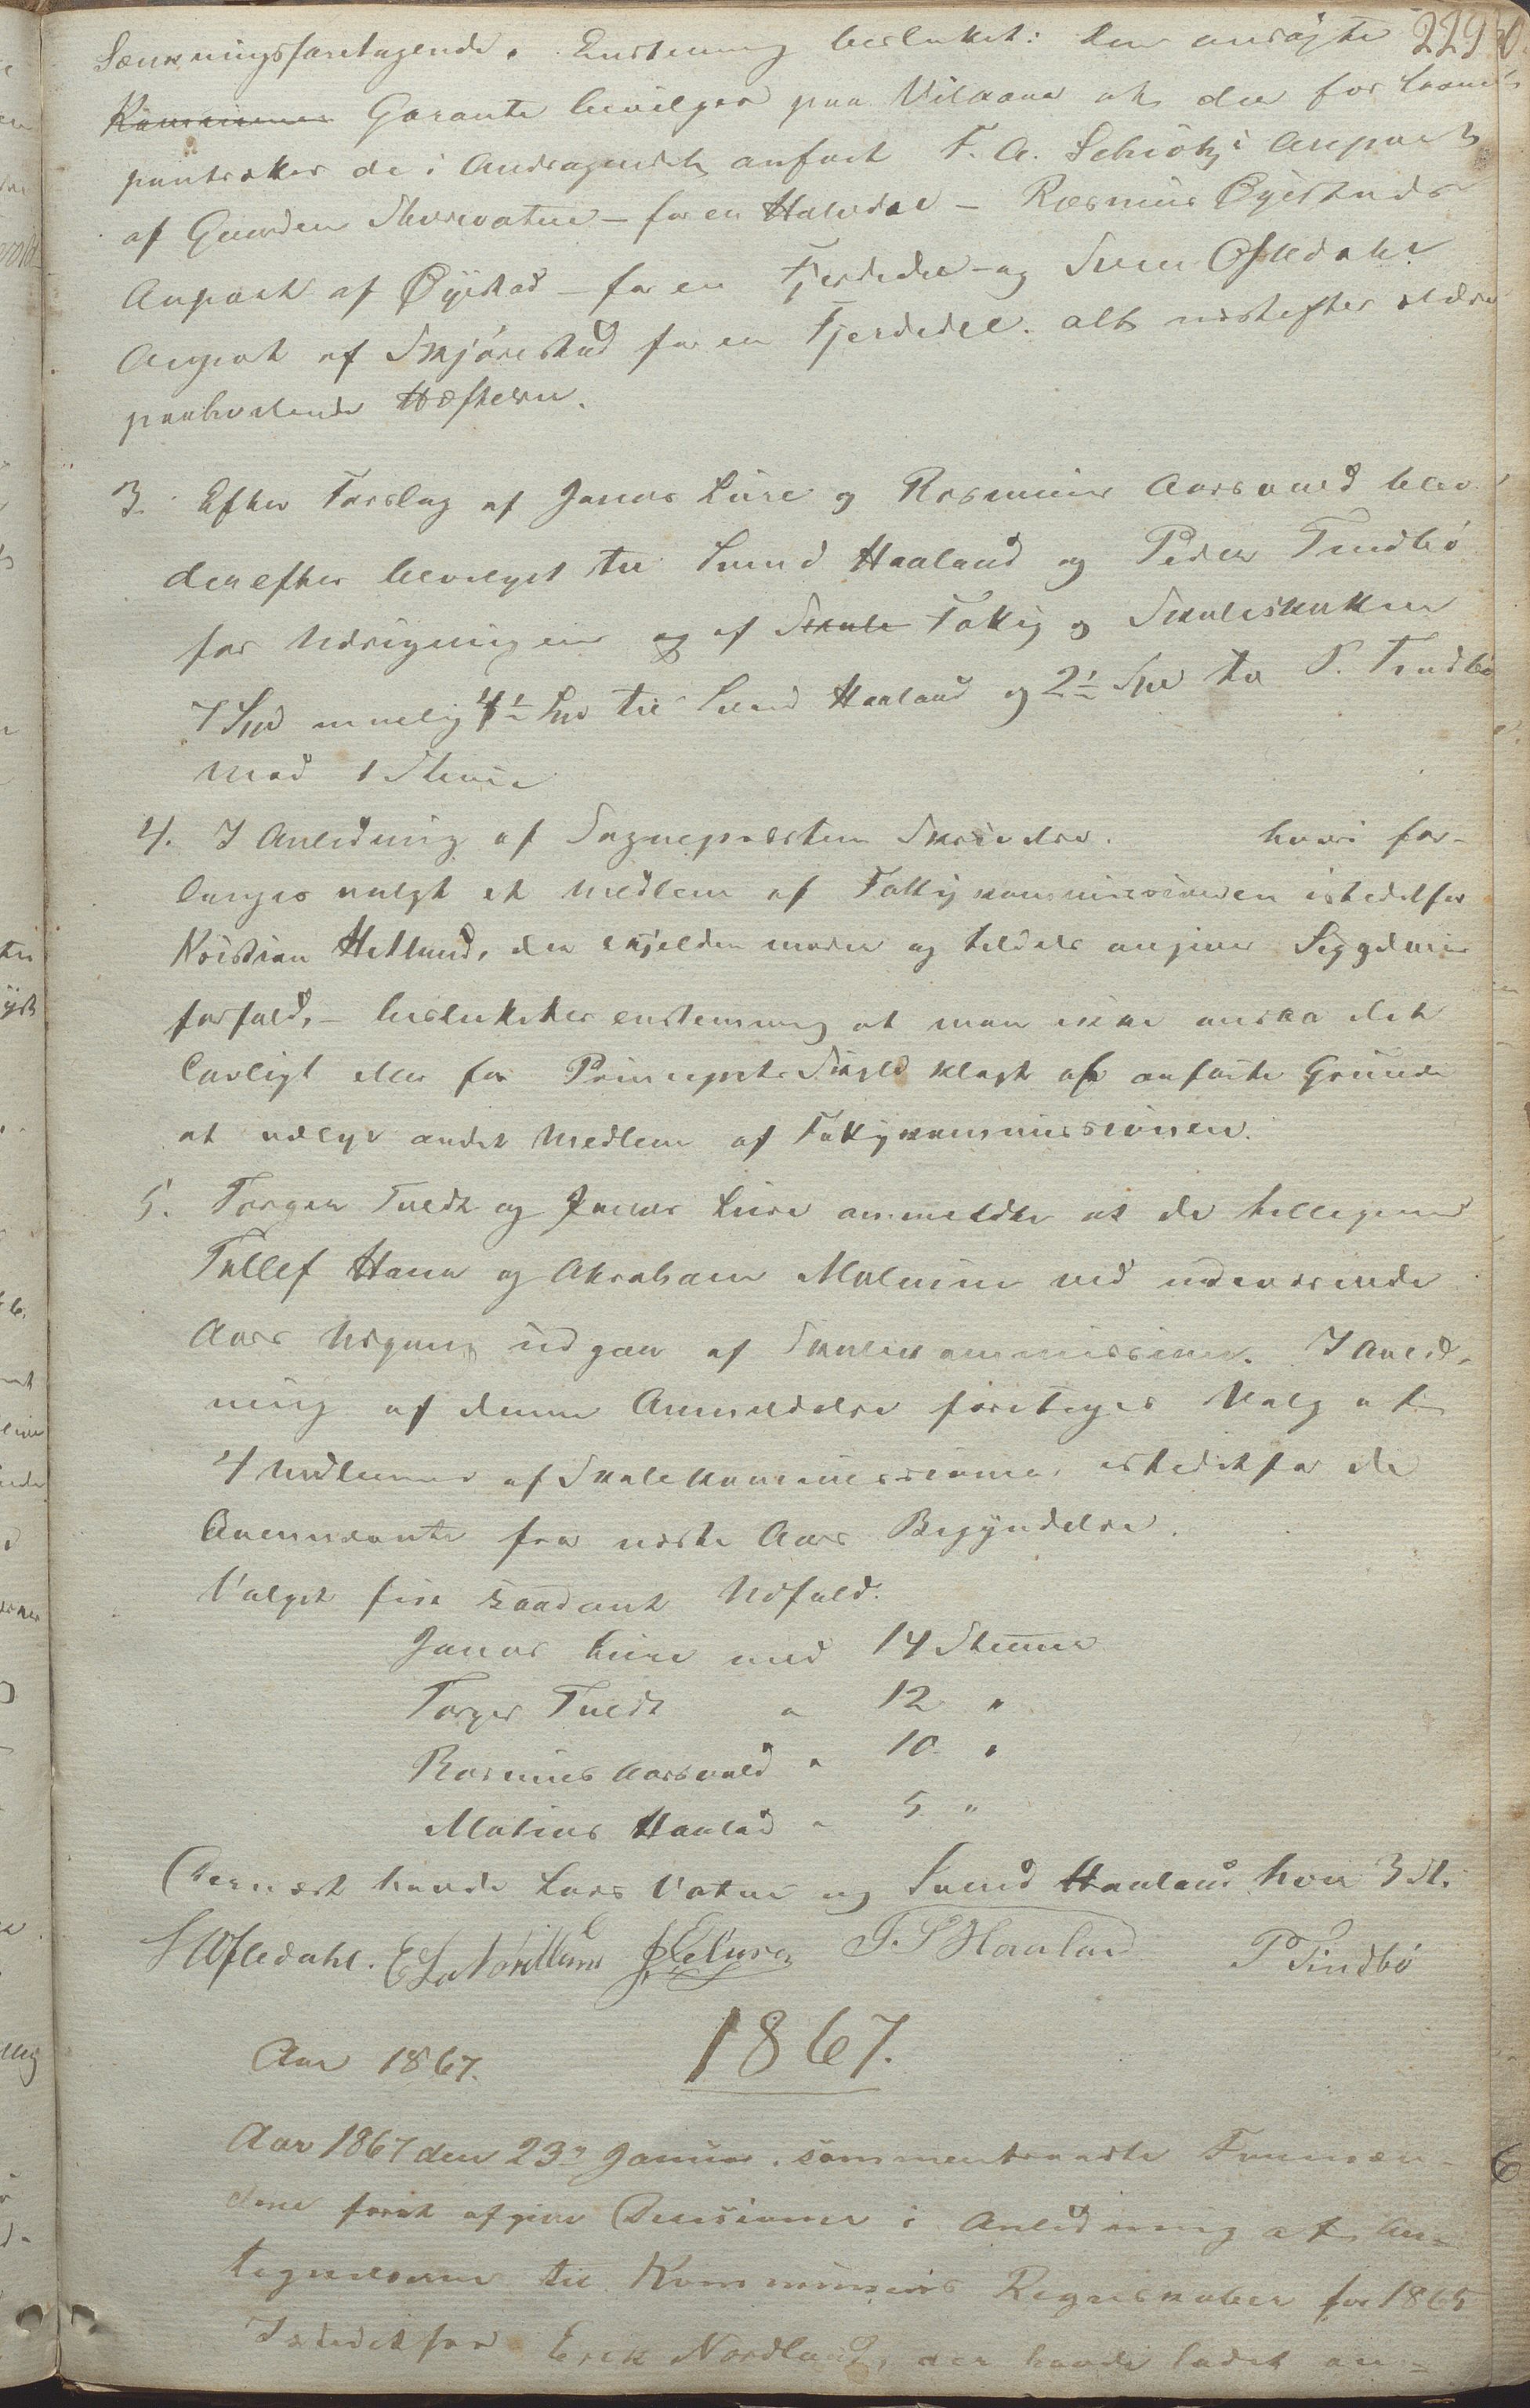 229
Sænkningsforetagende. Enstemmig besluttet: Den ansøgte
Garanti bevilges paa Vilkaar at der for Laanet
pantsættes de i Andragendet anført F. A. Schiøtz's Anpart
af Gaarden Storevatne – for en Halvdel – Rasmus Øyestads
Anpart af Øyestad – for en Fjerdedel – og Svend Ofstedahls
Anpart af Skjørestad for en Fjerdedel. alt næstefter ældre
paahvilende Hæftelser.
3. Efter Forslag af Jonas Lura og Rasmus Aarsvold blev
derefter bevilget til Svend Haaland og Peder Tindbø
for Udregningen og af Skole Fattig og Skoleskatten
7 Spd nemlig 4½ Spd til Svend Haaland og 2½ Spd til P. Tindbø
mod 1 Stemme
4. I Anledning af Sognepræstens Skrivelse. hvori for-
langes valgt et Medlem af Fattigkommissionen istedetfor
Kristian Hetland, der sjelden møder og tildels angiver Sygdoms
forfald, – besluttedes enstemmig at man ikke ansaa det
lovligt eller for Princippets Skyld klogt af anførte Grunde
at vælge andet Medlem af Fattigkommissionen.
5. Torger Tvedt og Jonas Lura anmeldte at de tilligemed
Tollef Hana og Abraham Malmin ved indeværende
Aars Udgang udgaar af Skolekommissionen. I Anled-
ning af denne Anmeldelse foretoges Valg af
4 Medlemmer af Skolekommissionen istedetfor de
fra næste Aars Begyndelse.
Valget fik saadant Udfald.
Jonas Lura med 14 Stemmer
Torger Tvedt " 12 "
Rasmus Aarsvold " 10 "
Matias Haaland " 5 "
Dernæst havde Lars Vatne og Svend Haaland hver 3 St.
S Ofstedahl. E L Nordland J. J. Lura T. S Haaland P Tindbø
1867.
Aar 1867.
Aar 1867 den 23de Januar sammentraadte Formæn-
dene forat afgive Decisioner i Anledning af An-
tegnelserne til Kommunens Regnskaber for 1865
Istedetfor Erik Nordland, der havde ladet an-